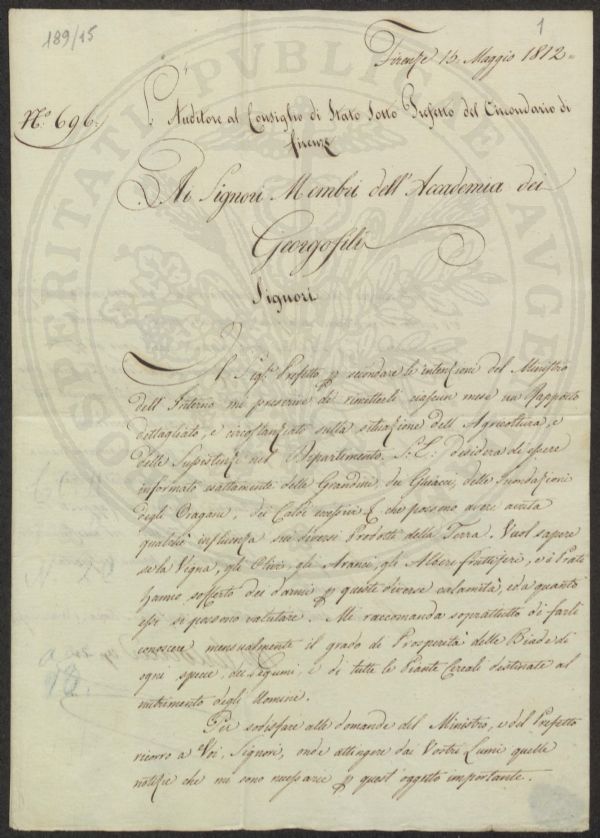 189/15
1
Firenze 15. Maggio 1812=
Nº 696.
L'Auditore al Consiglio di Stato Sotto Prefetto del Circondario di
Firenze
Ai Signori Membri dell'Accademia dei
Georgofili
Signori
Il Sigr. Prefetto p secondare le intenzioni del Ministro
dell'Interno mi prescrive di rimetterli ciascun mese un Rapporto
dettagliato, e circostanziato sulla situazione dell'Agricoltura, e
delle Sussistenze nel Dipartimento. S.E. desidera di essere
informato esattamente delle Grandini, dei Ghiacci, delle Inondazioni
degli Oragani, dei Calori eccessivi & che possono avere avuta
qualche influenza sui diversi Prodotti della Terra. Vuol sapere
se la Vigna, gli Olivi, gli Aranci, gli Alberi fruttiferi, e i Prati
hanno sofferto dei danni p queste diverse calamità, ed a quanto
essi si possono valutare. Mi raccomanda soprattutto di farli
conoscere mensualmente il grado di Prosperità delle Biade di
ogni specie, dei Legumi, e di tutte le Piante Cereali destinate al
nutrimento degli Uomini.
Per sodisfare alle domande del Ministro, e del Prefetto
ricorro a Voi, Signori, onde attingere dai Vostri Lumi quelle
notizie che mi sono necessarie p quest'oggetto importante.
PROSPERITATI PUBLICAE AUGENDAE